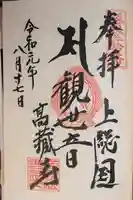 奉拝
上総国
札
観世音
高蔵寺
令和元年
八月十七日